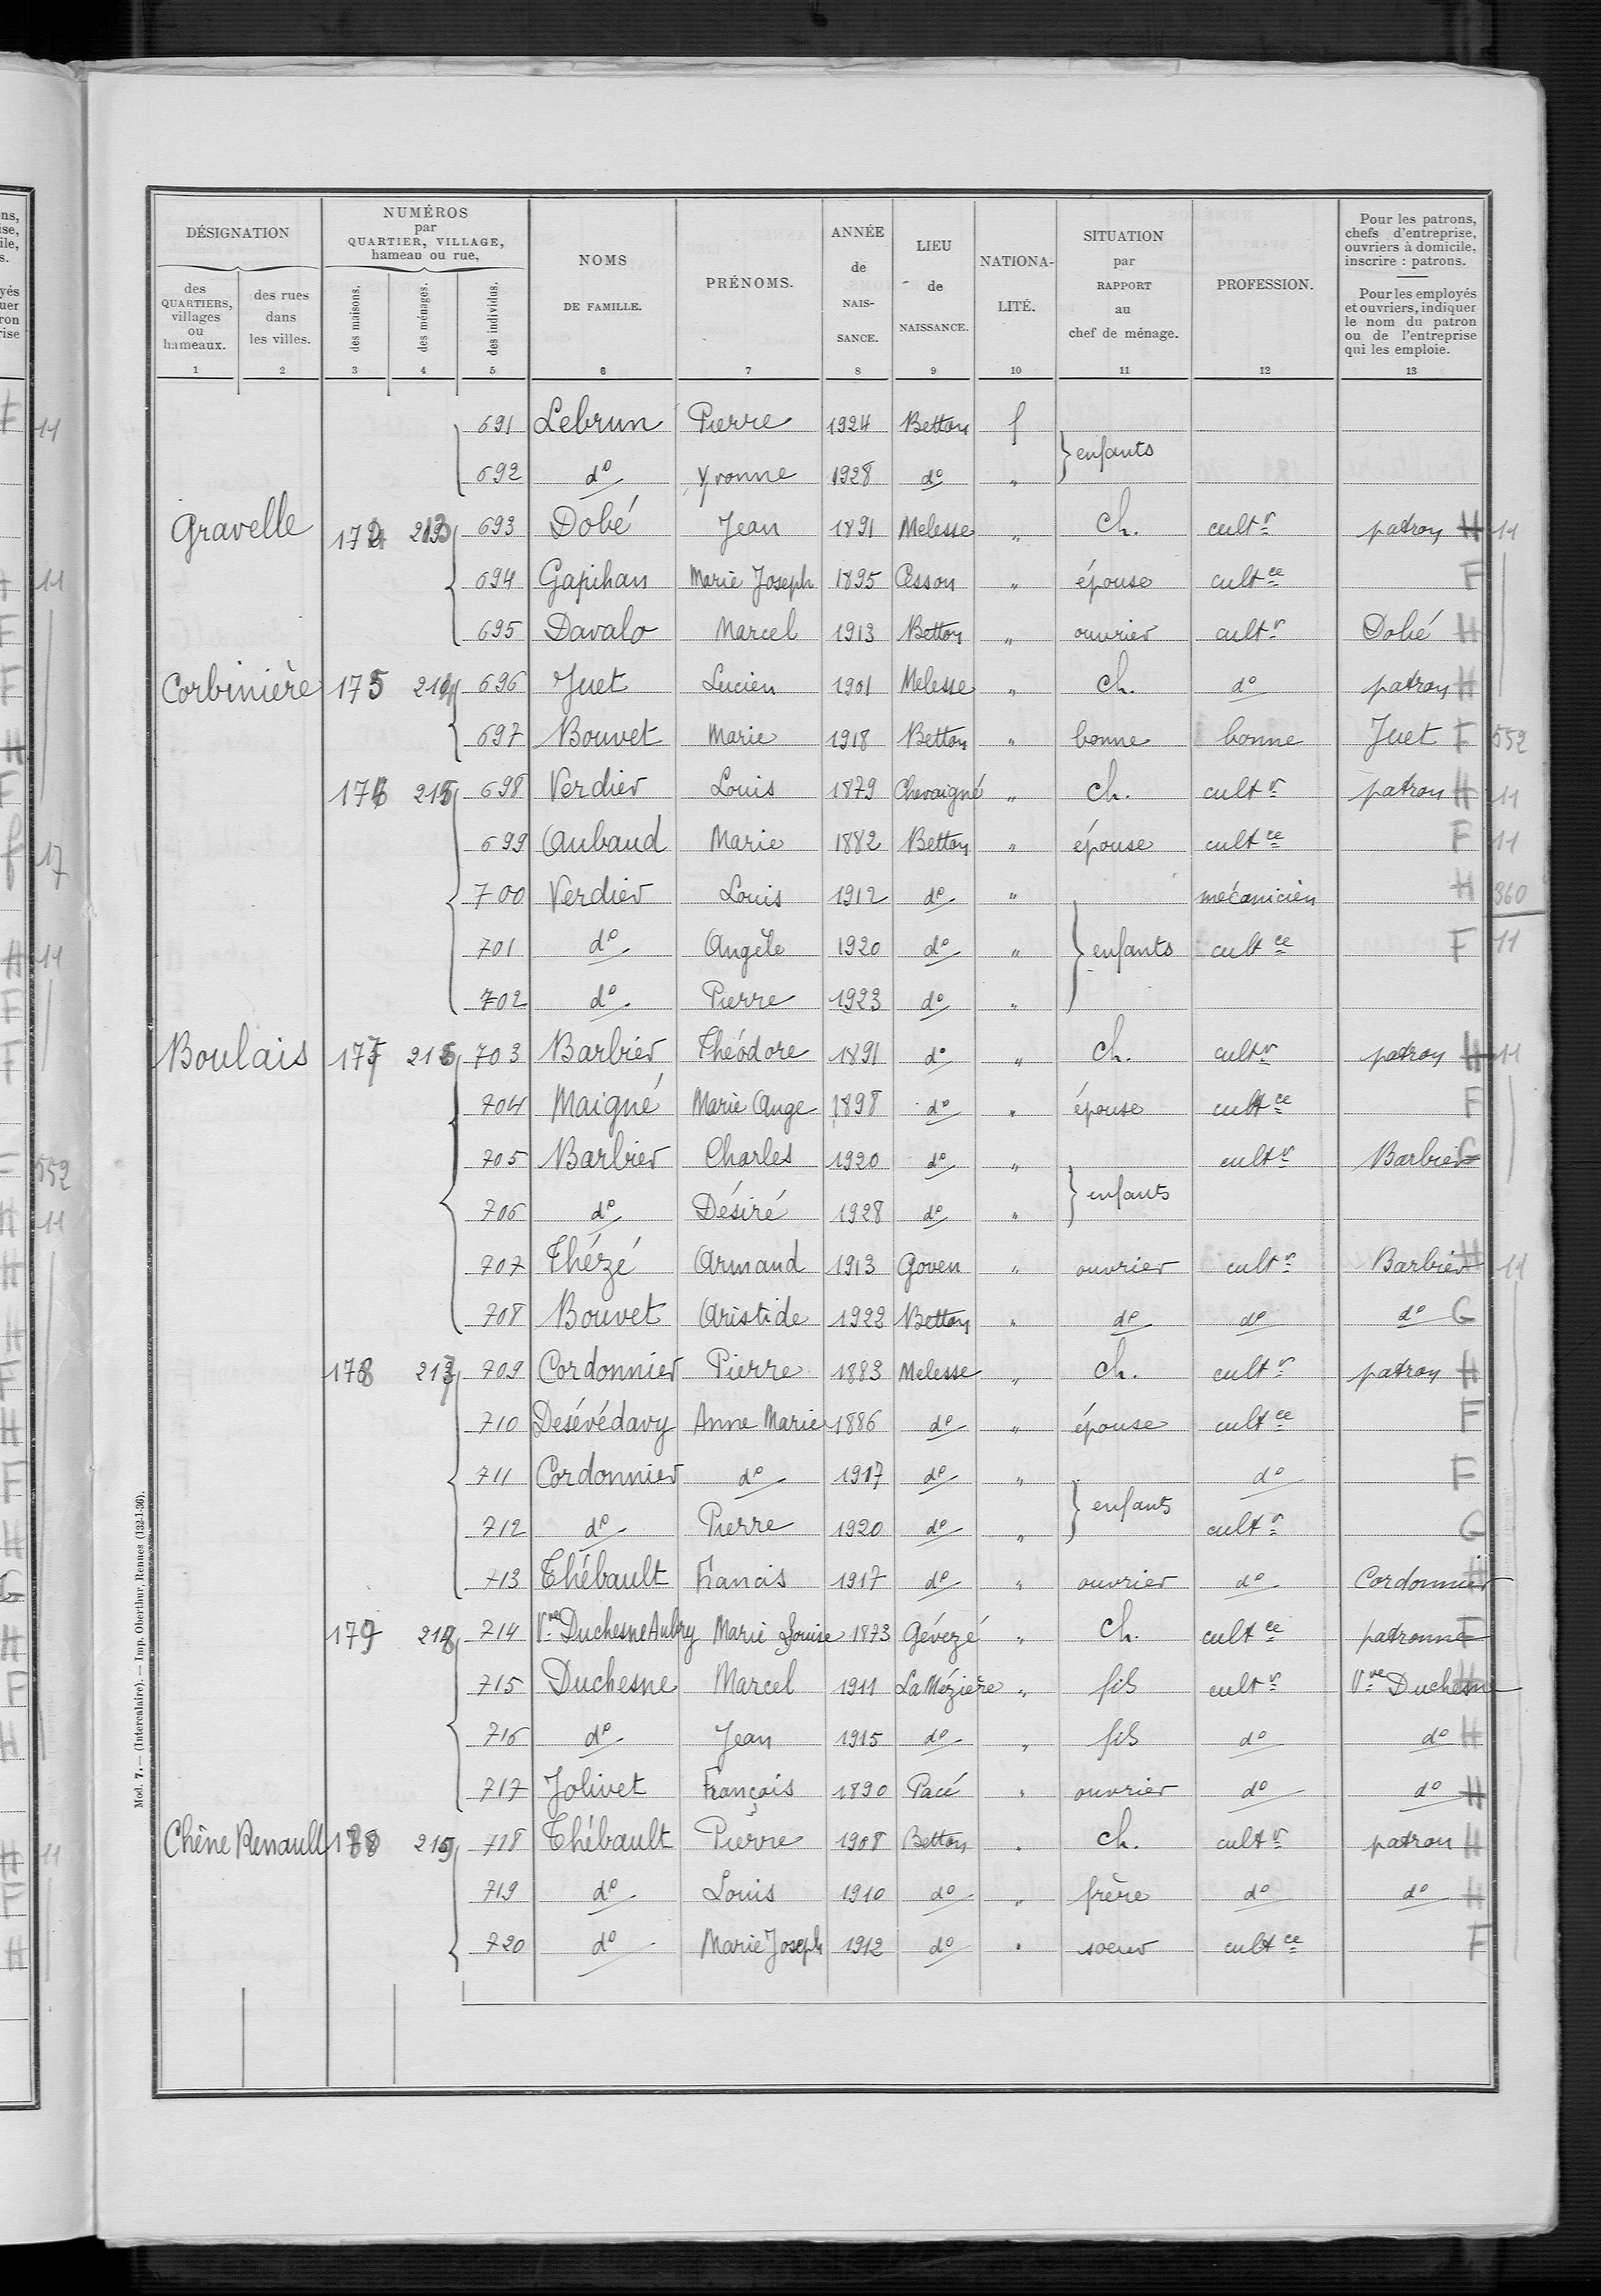 DÉSIGNATION
des QUARTIERS, villages ou hameaux.
des rues dans les villes.
NUMÉROS par QUARTIER, VILLAGE, hameau ou rue,
des maisons.
des ménages.
des individus.
NOMS DE FAMILLE.
PRÉNOMS.
ANNÉE de NAIS-SANCE.
LIEU de NAISSANCE.
NATIONA-LITÉ.
SITUATION par RAPPORT au chef de ménage.
PROFESSION.
Pour les patrons, chefs d'entreprise, ouvriers à domicile, inscrire : patrons.
Pour les employés et ouvriers, indiquer le nom du patron ou de l'entreprise qui les emploie.
1 2 3 4 5 6 7 8 9 10 11 12 13
691 Lebrun Pierre 1924 Betton f
enfants
692 do Yvonne 1928 do "
Gravelle 174 213 693 Dobé Jean 1891 Melesse " ch. cultr patron H 11
694 Gapihan Marie Joseph 1895 Cesson " épouse cultce F
695 Davalo Marcel 1913 Betton " ouvrier cultr Dobé H
Corbinière 175 214 696 Juet Lucien 1901 Melesse " ch. do patron H
697 Bouvet Marie 1918 Betton " bonne bonne Juet F 552
176 215 698 Verdier Louis 1879 Chevaigné " ch. cultr patron H 11
699 Aubaud Marie 1882 Betton " épouse cultce F 11
700 Verdier Louis 1912 do " mécanicien H 360
701 do Angèle 1920 do " enfants cultce F 11
702 do Pierre 1923 do "
Boulais 177 216 703 Barbier Théodore 1891 do " ch. cultr patron H 11
704 Maigné Marie Ange 1898 do " épouse cultce F
705 Barbier Charles 1920 do " cultr Barbier G
enfants
706 do Désiré 1928 do "
707 Thézé Armand 1913 Goven " ouvrier cultr Barbier H 11
708 Bouvet Aristide 1922 Betton " do do do G
178 217 709 Cordonnier Pierre 1883 Melesse " ch. cultr patron H
710 Desévédavy Anne Marie 1886 do " épouse cultce F
711 Cordonnier do 1917 do " do F
enfants
712 do Pierre 1920 do " cultr G
713 Thébault Francis 1917 do " ouvrier do Cordonnier H
179 218 714 Vve Duchesne Aubry Marie Louise 1873 Gévezé " ch. cultce patronne F
715 Duchesne Marcel 1911 La Mézière " fils cultr Vve Duchesne H
716 do Jean 1915 do " fils do do H
717 Jolivet François 1890 Pacé " ouvrier do do H
Chêne Renault 180 219 718 Thébault Pierre 1908 Betton " ch. cultr patron H
719 do Louis 1910 do " frère do do H
720 do Marie Joseph 1912 do " soeur cultce F
Mod. 7. — (Intercalaire). — Imp. Oberthur, Rennes (132-1-36).